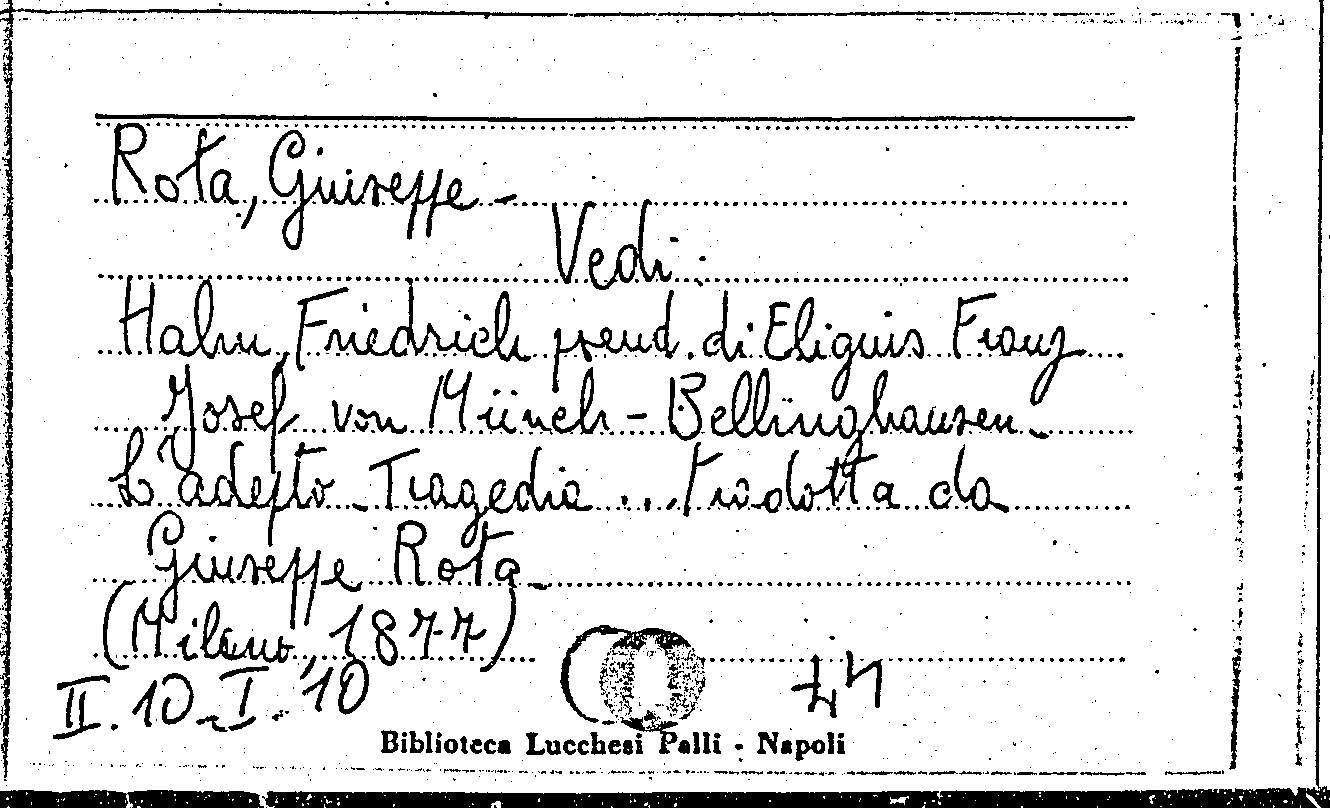 Rota, Giuseppe -
Vedi:
Halm, Friedrich pseud. di Eliguis Franz
Josef von Münch-Bellinghausen.
L'adepto - Tragedia ... tradotta da
Giuseppe Rota -
(Milano, 1877)
II. 10 - I. 10
Biblioteca Lucchesi Palli - Napoli